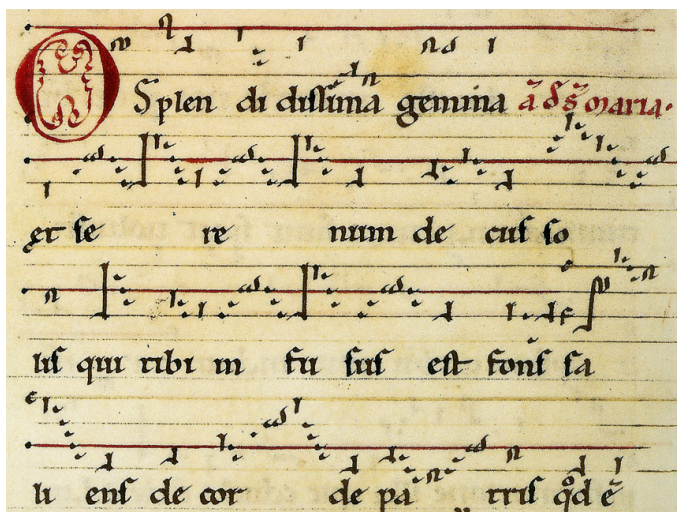 O Splen di dissima gemma ā d̄ s̄ maria.
et se re num de cus so
lis qui tibi in fu sus est fons sa
li ens de cor de pa tris qđ ē